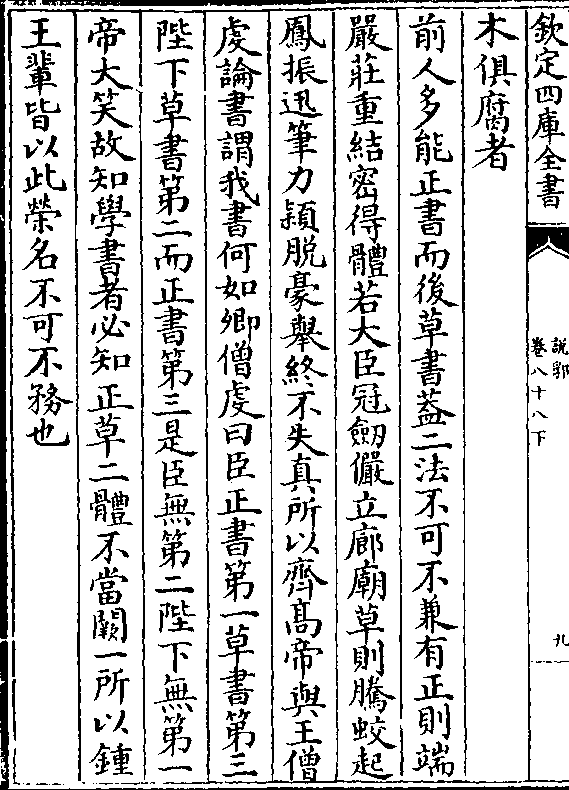 欽定四庫全書
說郛
卷八十八下
九
木俱腐者
前人多能正書而後草書葢二法不可不兼有正則端
嚴莊重結密得體若大臣冠劒儼立廊廟草則騰蛟起
鳳振迅筆力穎脱豪舉終不失真所以齊髙帝與王僧
虔論書謂我書何如卿僧虔曰臣正書第一草書第三
陛下草書第二而正書第三是臣無第二陛下無第一
帝大笑故知學書者必知正草二體不當闕一所以鍾
王輩皆以此榮名不可不務也